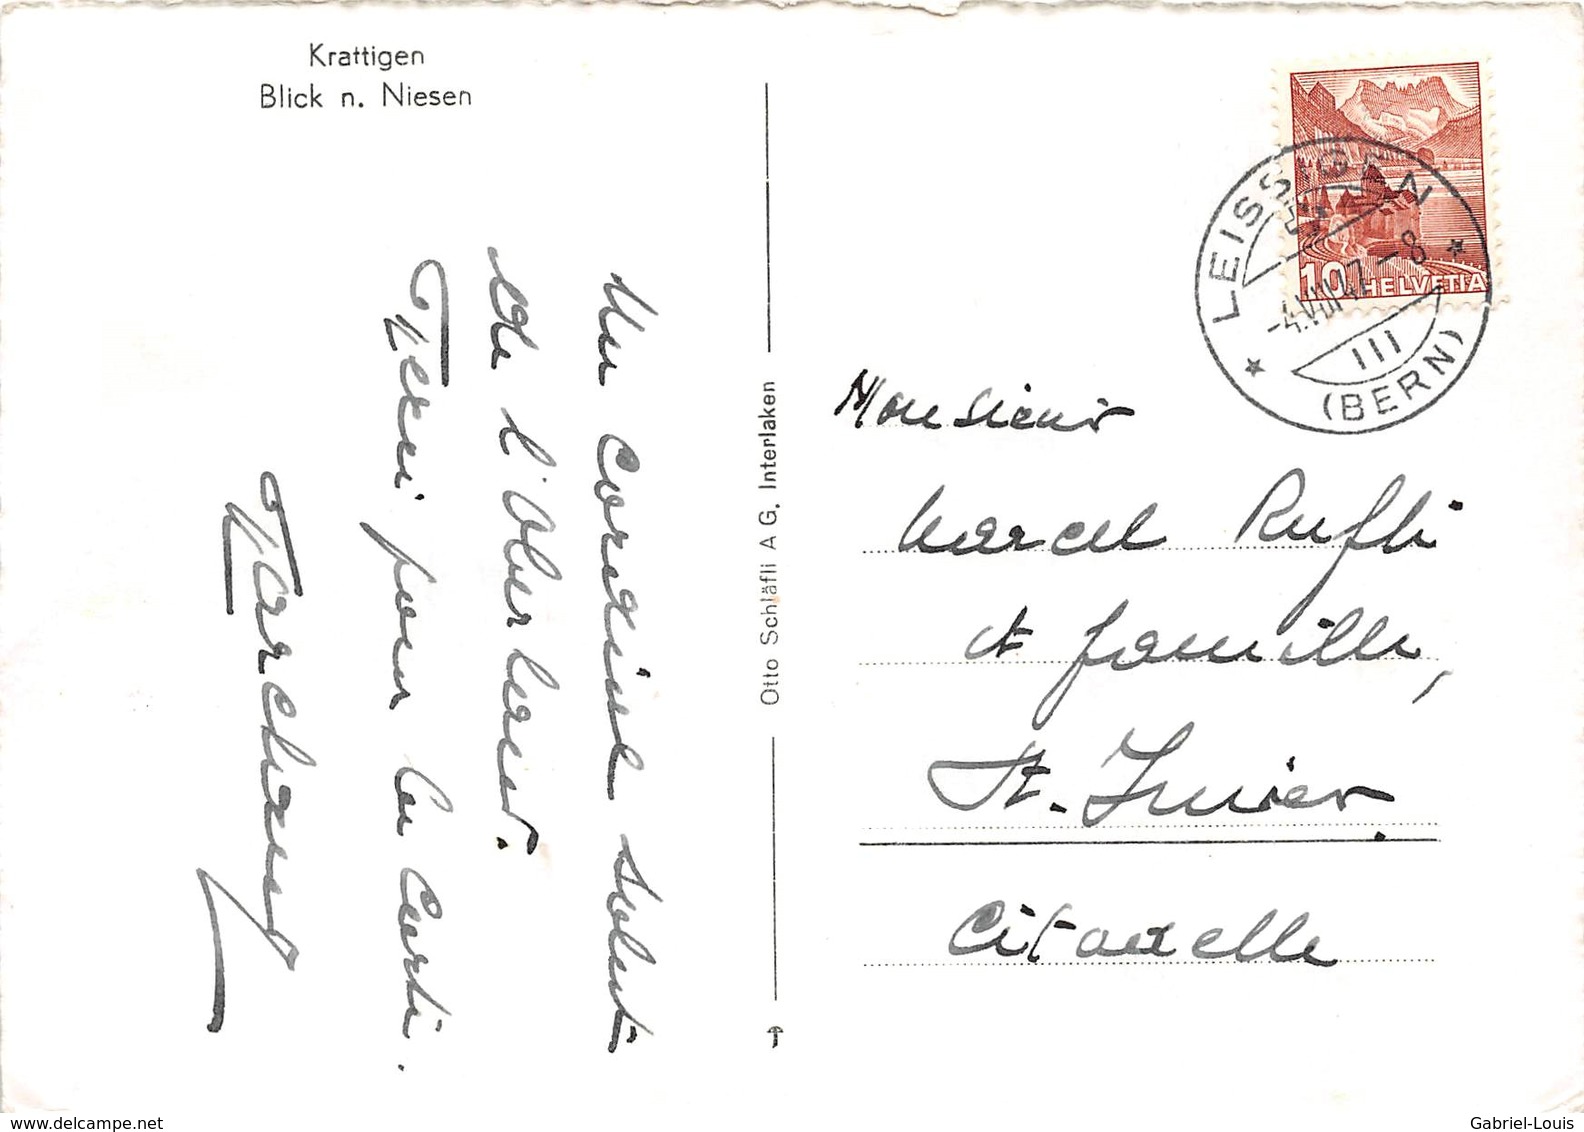 Krattigen
Blick n. Niesen
Un cordial salut
de l'Oberland.
Merci pour la carte.
Otto Schläfli A G. Interlaken
LEISSIGEN
-4.VIII.47.-8
III
(BERN)
10 HELVETIA
Monsieur
Marcel Rufli
et famille,
St. Imier
Citadelle
www.delcampe.net
Gabriel-Louis